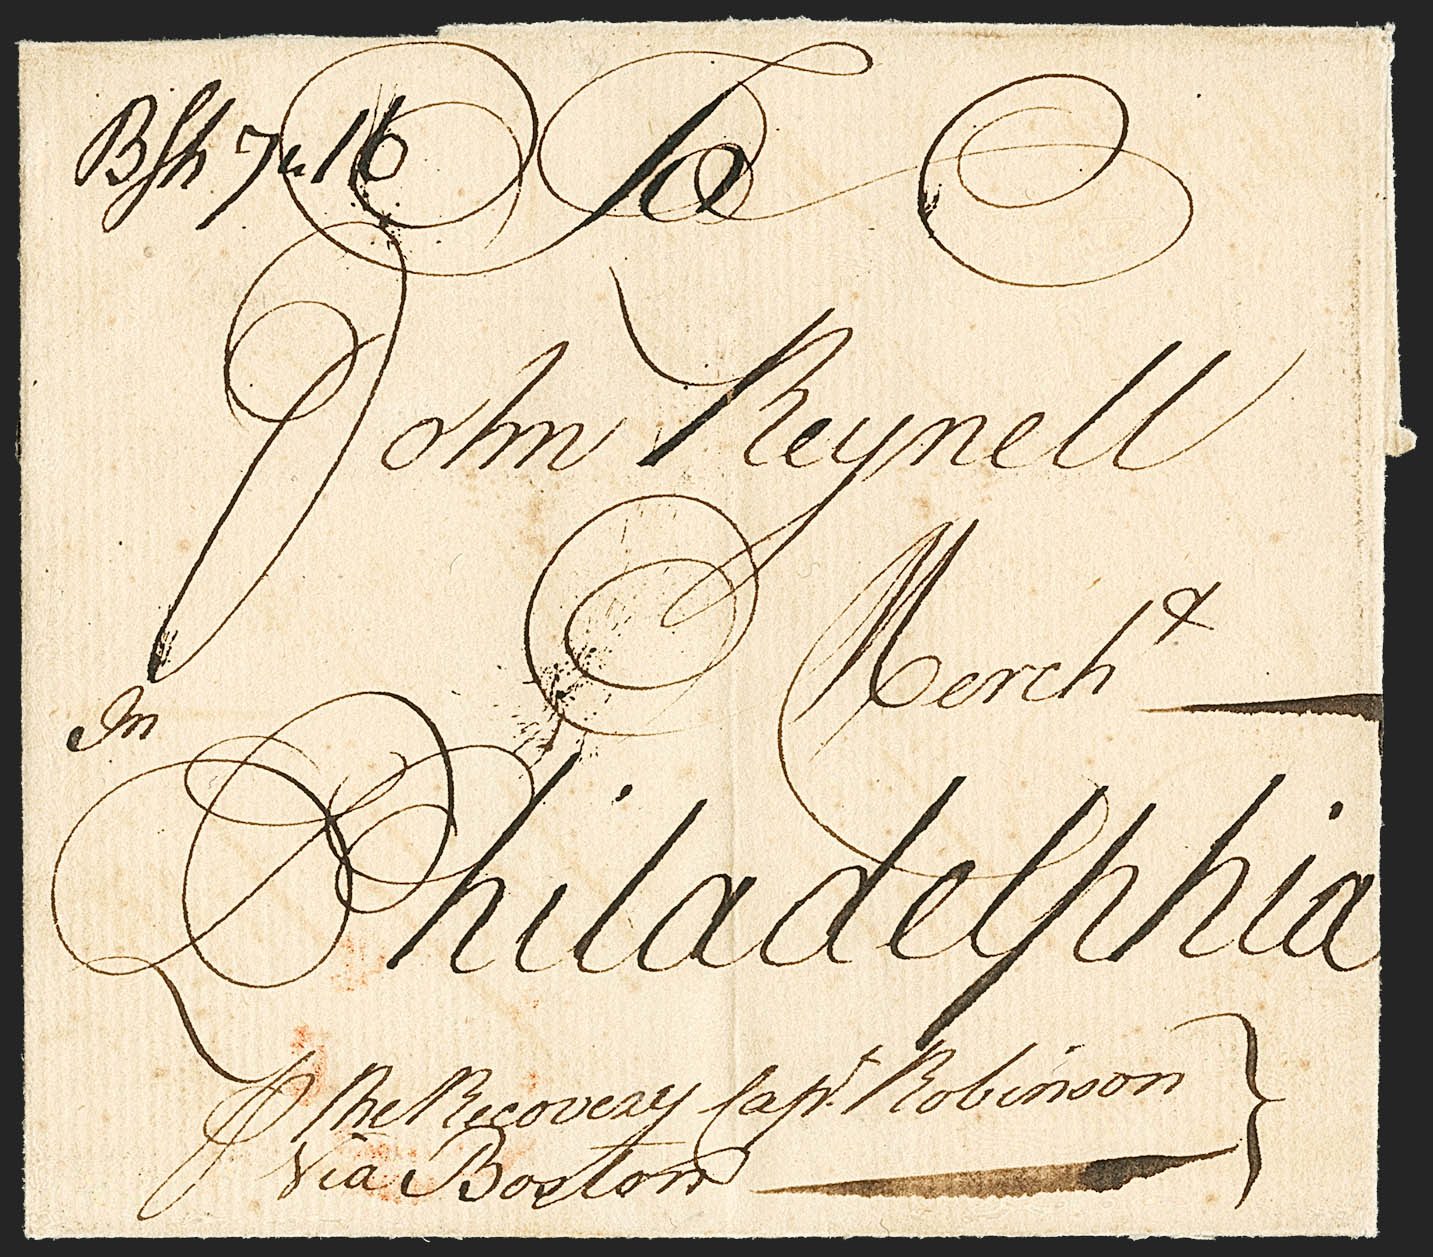 Bſh 7„16
To
John Reynell
Merch.t
In
Philadelphia
⅌ the Recovery Capt. Robinson
Via Boston